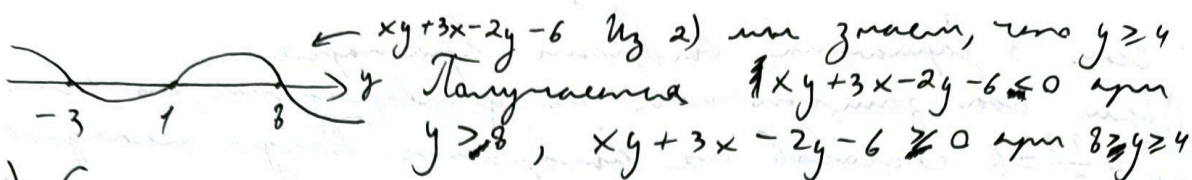 xy+3x-2y-6 Из 2) мы знаем, что y≥4
-3 1 8 y Получается xy+3x-2y-6≤0 при
y≥8, xy+3x-2y-6≥0 при 8≥y≥4